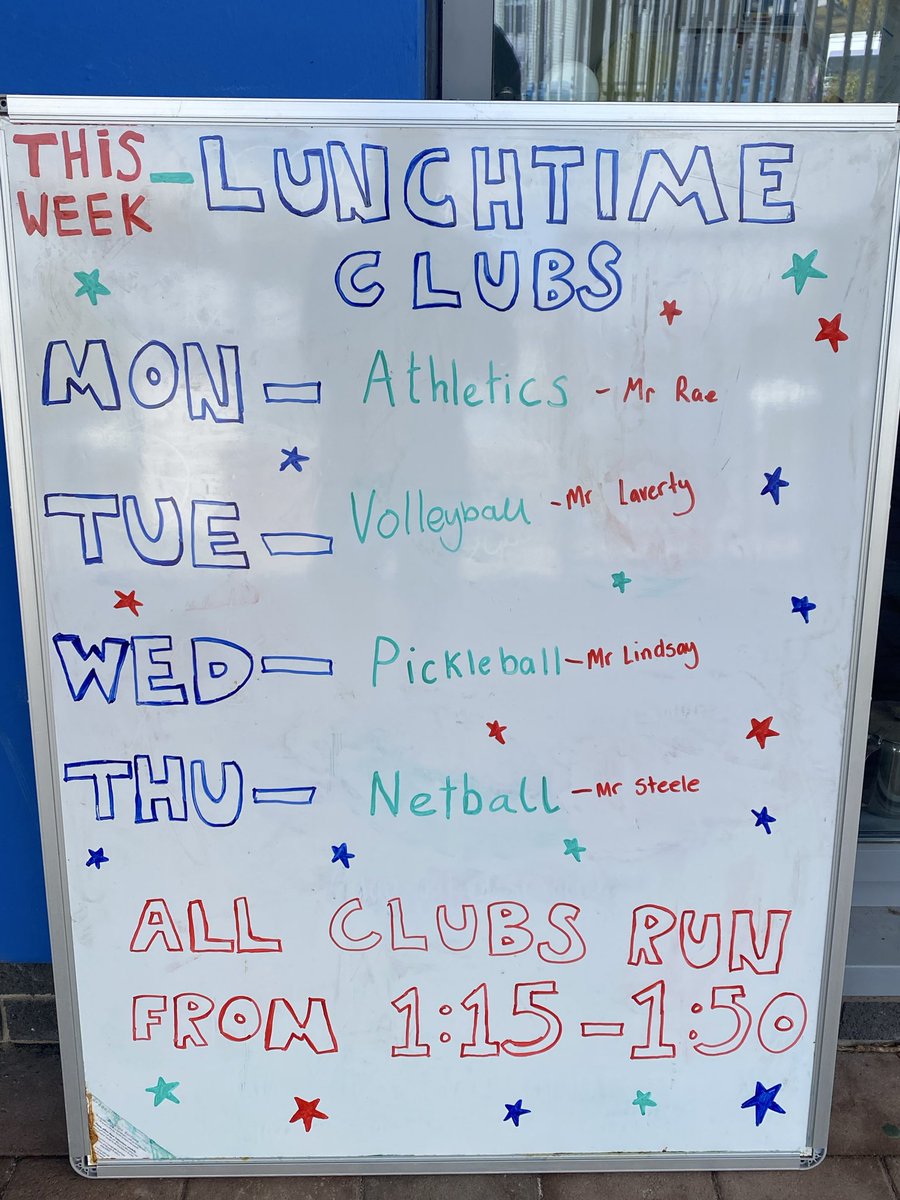 THiS WEEK - LUNCHTIME
CLUBS
MON - Athletics - Mr Rae
TUE - Volleyball - Mr Laverty
WED - Pickleball - Mr Lindsay
THU - Netball - Mr Steele
ALL CLUBS RUN
FROM 1:15 - 1:50